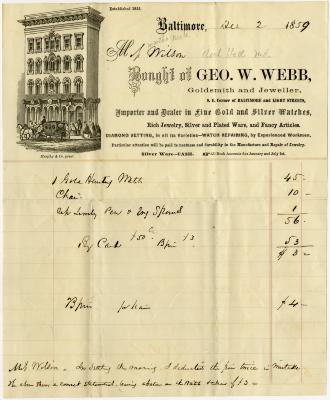 Established 1815.
Baltimore, Dec 2 1859
M J Wilson
Rock Hall Md
Bought of GEO. W. WEBB,
Goldsmith and Jeweller,
S. E. Corner of BALTIMORE and LIGHT STREETS,
Importer and Dealer in Fine Gold and Silver Watches,
Rich Jewelry, Silver and Plated Ware, and Fancy Articles.
DIAMOND SETTING, in all its Varieties—WATCH REPAIRING, by Experienced Workmen.
Particular attention will be paid to neatness and durability in the Manufacture and Repair of Jewelry.
Murphy & Co. print.
Silver Ware—CASH. All Book Accounts due January and July 1st.
1 Gold Hunting Watch 45-
Chain 10-
Pen & Eng Spoons 1
56-
By Cash $50 Bpin $3 53
$3-
Bpin for hair $4-
Mr J Wilson - In settling this morning I deducted the pin twice in mistake
The above shows a correct statement, leaving a balance on the Watch & chain of $3-